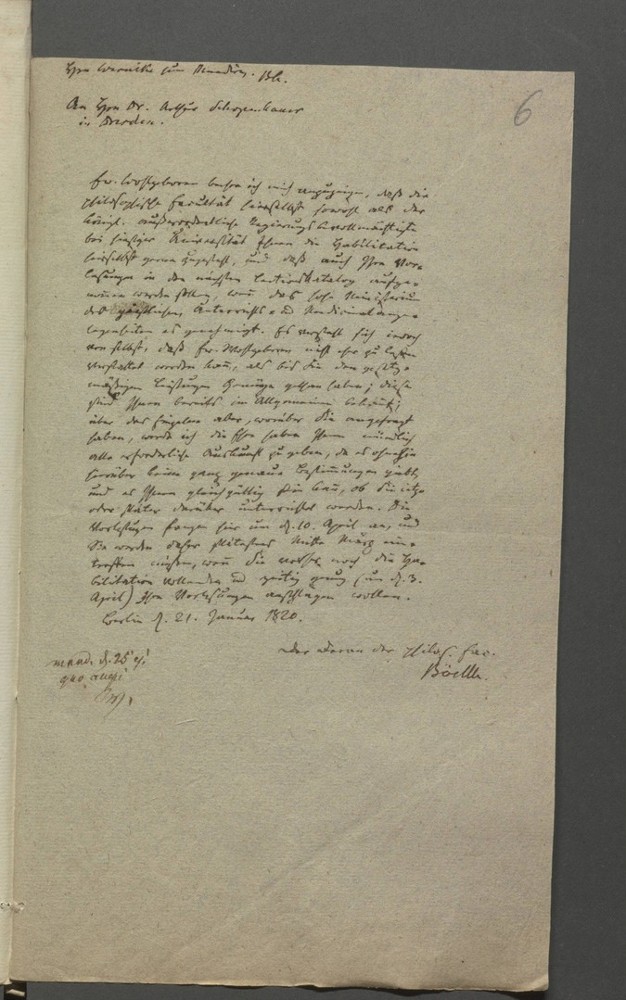 Hrn Wernicke zum Mundiren. Bh.
6
An Hrn Dr. Arthur Schopenhauer
in Dresden.
Ew. Wohlgeboren beehre ich mich anzuzeigen, daß die
philosophische Facultät hierselbst sowohl als der
königl. außerordentliche Regierungsbevollmächtigte
bei hiesiger Universität Ihnen die Habilitation
hierselbst gerne zugesteht, und daß auch Ihre Vor-
lesungen in den nächsten Lectionskatalog aufge-
nommen werden sollen, wenn das hohe Ministerium
der geistlichen, Unterrichts- und Medicinalange-
legenheiten es genehmigt. Es versteht sich jedoch
von selbst, daß Ew. Wohlgeboren nicht eher zu lesen
verstattet werden kann, als bis Sie den gesetz-
mäßigen Leistungen Genüge gethan haben; diese
sind Ihnen bereits im Allgemeinen bekannt;
über das Einzelne aber, worüber Sie angefragt
haben, werde ich die Ehre haben Ihnen mündlich
alle erforderliche Auskunft zu geben, da es ohnehin
hierüber keine ganz genaue Bestimmungen giebt,
und es Ihnen gleichgültig sein kann, ob Sie jetzt
oder später darüber unterrichtet werden. Die
Vorlesungen fangen hier um d. 10. April an, und
Sie werden daher spätestens Mitte März ein-
treffen müssen, wenn Sie vorher noch die Ha-
bilitation vollenden und zeitig genug (um d. 3.
April) Ihre Vorlesungen anschlagen wollen.
Berlin d. 21. Januar 1820.
Der Decan der philos. Fac.
Böckh.
mund. d. 25